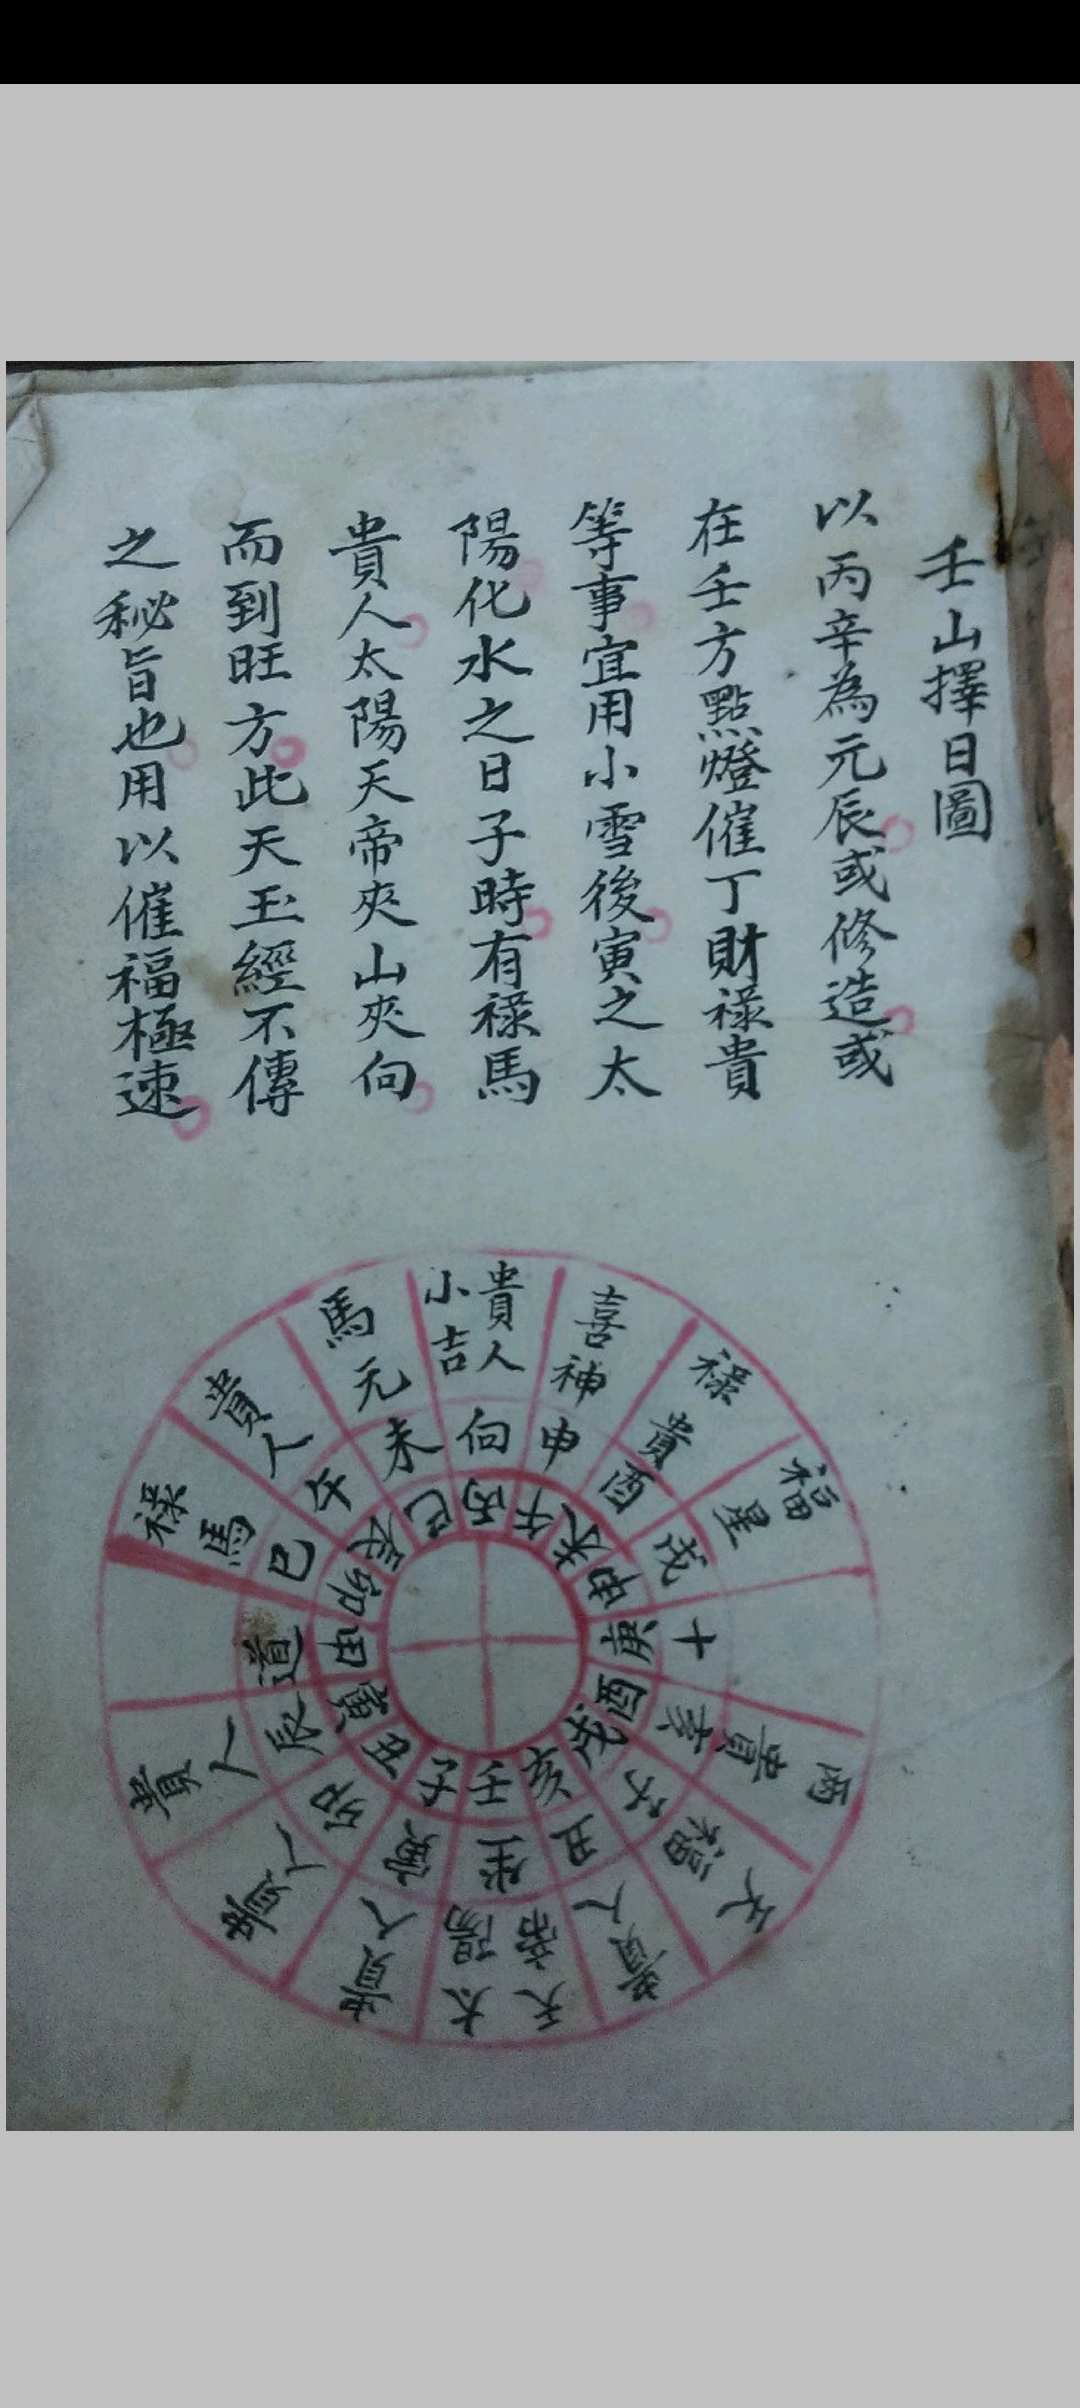 壬山擇日圖
以丙辛為元辰或修造或
在壬方點燈催丁財祿貴
等事宜用小雪後寅之太
陽化水之日子時有祿馬
貴人太陽天帝夾山夾向
而到旺方此天玉經不傳
之秘旨也用以催福極速
貴人
小吉
喜神
祿貴
福星
丙貴
天福
貴人
天帝
太陽
貴人
貴人
貴人
祿馬
貴人
馬元
向
申
酉
戌
十
亥
丑
坐
寅
卯
辰
道
巳
午
未
丙
午
未
申
庚
酉
戌
亥
壬
子
丑
寅
甲
卯
辰
巳